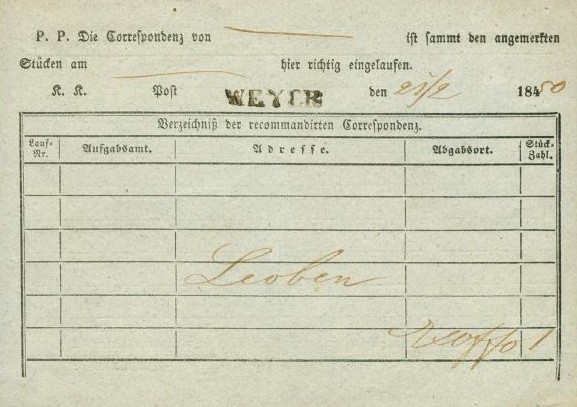 P. P. Die Correspondenz von ist sammt den angemerkten
Stücken am hier richtig eingelaufen.
K. K. Post WEYER den 25/2 184 50
Verzeichniß der recommandirten Correspondenz.
Lauf-Nr. Aufgabsamt. Adresse. Abgabsort. Stück-Zahl.
Leoben
1